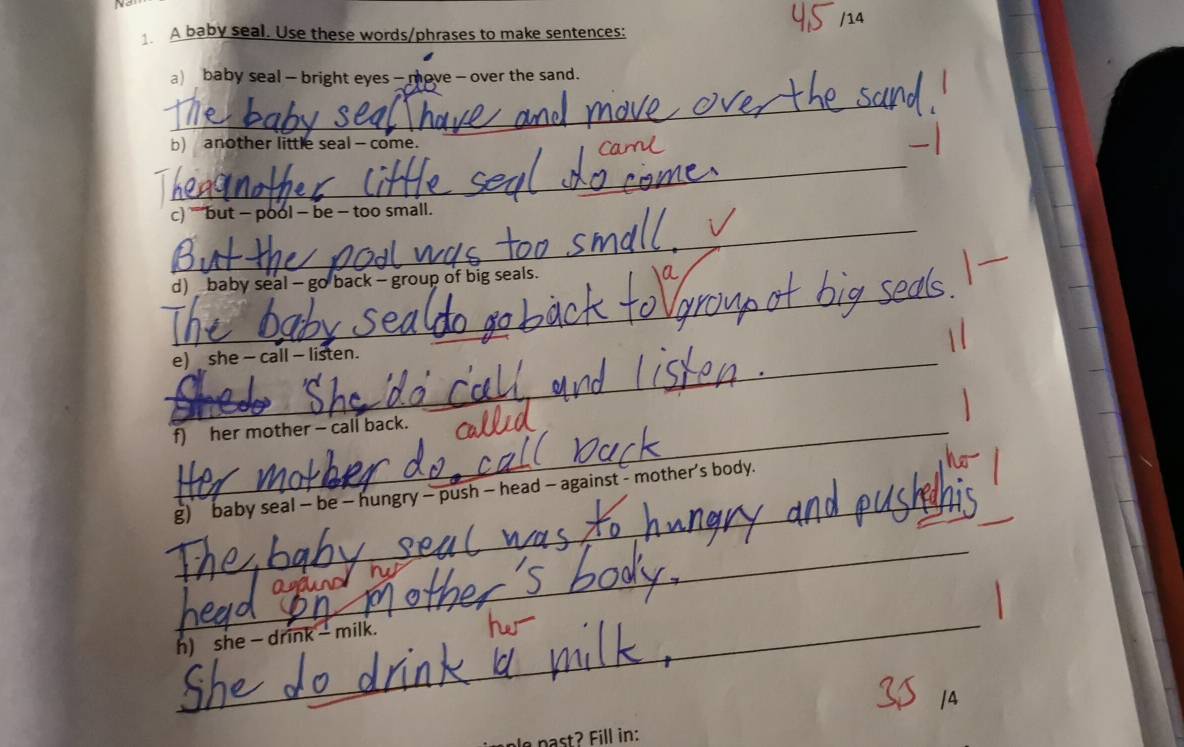 1. A baby seal. Use these words/phrases to make sentences:
4,5 /14
a) baby seal – bright eyes – move – over the sand.
The baby seal have and move over the sand. 1
b) another little seal – come.
came -1
Then another little seal do come.
c) but – pool – be – too small.
But the pool was too small. ✓
d) baby seal – go back – group of big seals.
a 1 –
The baby seal do go back to group of big seals.
e) she – call – listen.
11
She do call and listen.
f) her mother – call back.
called 1
Her mother do call back
g) baby seal – be – hungry – push – head – against - mother's body.
her 1
The baby seal was to hungry and pushed his
against her
head on Mother's body.
h) she – drink – milk.
her 1
She do drink a milk.
3,5 /4
past? Fill in: